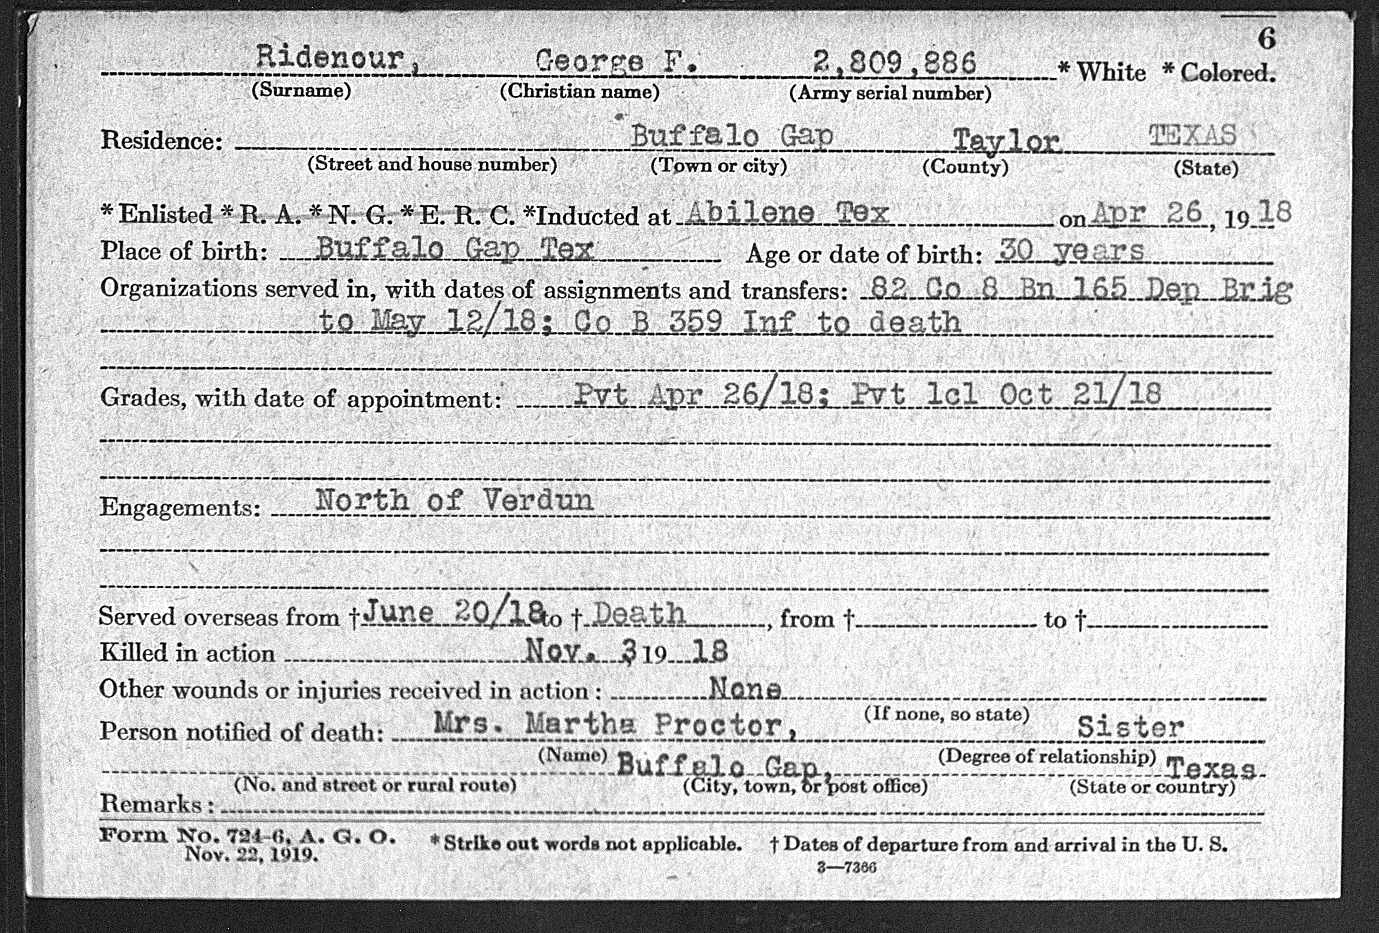 6
Ridenour, George F. 2,809,886 * White * Colored.
(Surname) (Christian name) (Army serial number)
Residence: Buffalo Gap Taylor TEXAS
(Street and house number) (Town or city) (County) (State)
* Enlisted * R. A. * N. G. * E. R. C. *Inducted at Abilene Tex on Apr 26, 1918
Place of birth: Buffalo Gap Tex Age or date of birth: 30 years
Organizations served in, with dates of assignments and transfers: 82 Co 8 Bn 165 Dep Brig
to May 12/18; Co B 359 Inf to death
Grades, with date of appointment: Pvt Apr 26/18; Pvt 1cl Oct 21/18
Engagements: North of Verdun
Served overseas from † June 20/18 to † Death, from † to †
Killed in action Nov. 3 19 18
Other wounds or injuries received in action: None
(If none, so state)
Person notified of death: Mrs. Martha Proctor, Sister
(Name) (Degree of relationship)
Buffalo Gap, Texas
(No. and street or rural route) (City, town, or post office) (State or country)
Remarks:
Form No. 724-6, A. G. O. * Strike out words not applicable. † Dates of departure from and arrival in the U. S.
Nov. 22, 1919.
3—7386